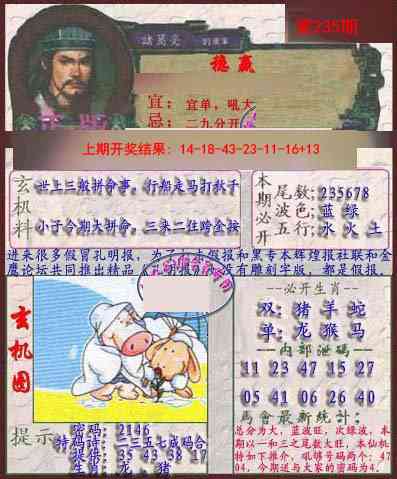 第235期
諸葛亮
稳赢
宜：宜单，吼大
忌：二九分开
上期开奖结果: 14-18-43-23-11-16+13
玄机料
世上三般拼命事，行船走马打秋千
小子今期大拼命，三来二往跨金按
本期必开
尾数:235678
波色:蓝 绿
五行:水 火 土
进来很多假冒孔明报，为了打击假报和黑专本辉煌报社联和金
鹰论坛共同推出精品
没有雕刻字版，都是假报。
玄机图
--必开生肖--
双:猪 羊 蛇
单:龙 猴 马
--内部泄码--
11 23 47 15 27
05 41 06 26 40
馬會最新統計:
总分为大，蓝波旺，次绿波，本
期以一和三之尾数大旺，本仙机
特如下推介，吼够号码两个: 47
04，今期送与大家的密码为4.
提示
密码: 2146
特码诗: 二三五七成码合
提供: 35 43 38 17
生肖: 龙、猪